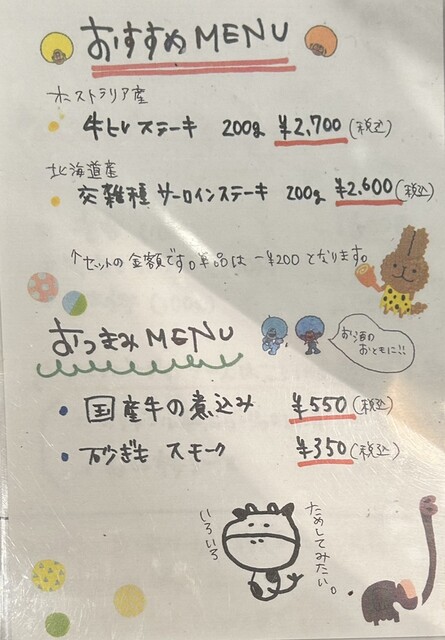 おすすめ MENU
オーストラリア産
牛ヒレステーキ 200g ¥2,700 (税込)
北海道産
交雑種 サーロインステーキ 200g ¥2,600 (税込)
↑セットの金額です。単品は −¥200 となります。
おつまみ MENU
お酒の
おともに!!
国産牛の煮込み ¥550 (税込)
砂ぎも スモーク ¥350 (税込)
ためしてみたい。
いろいろ